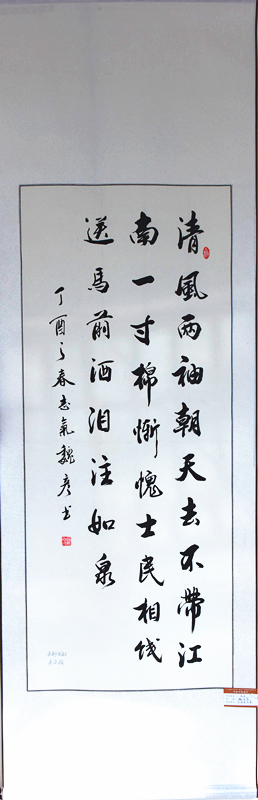 清風两袖朝天去不帶江
南一寸棉慚愧士民相饯
送馬前洒泪注如泉
丁酉之春志氣魏彦书